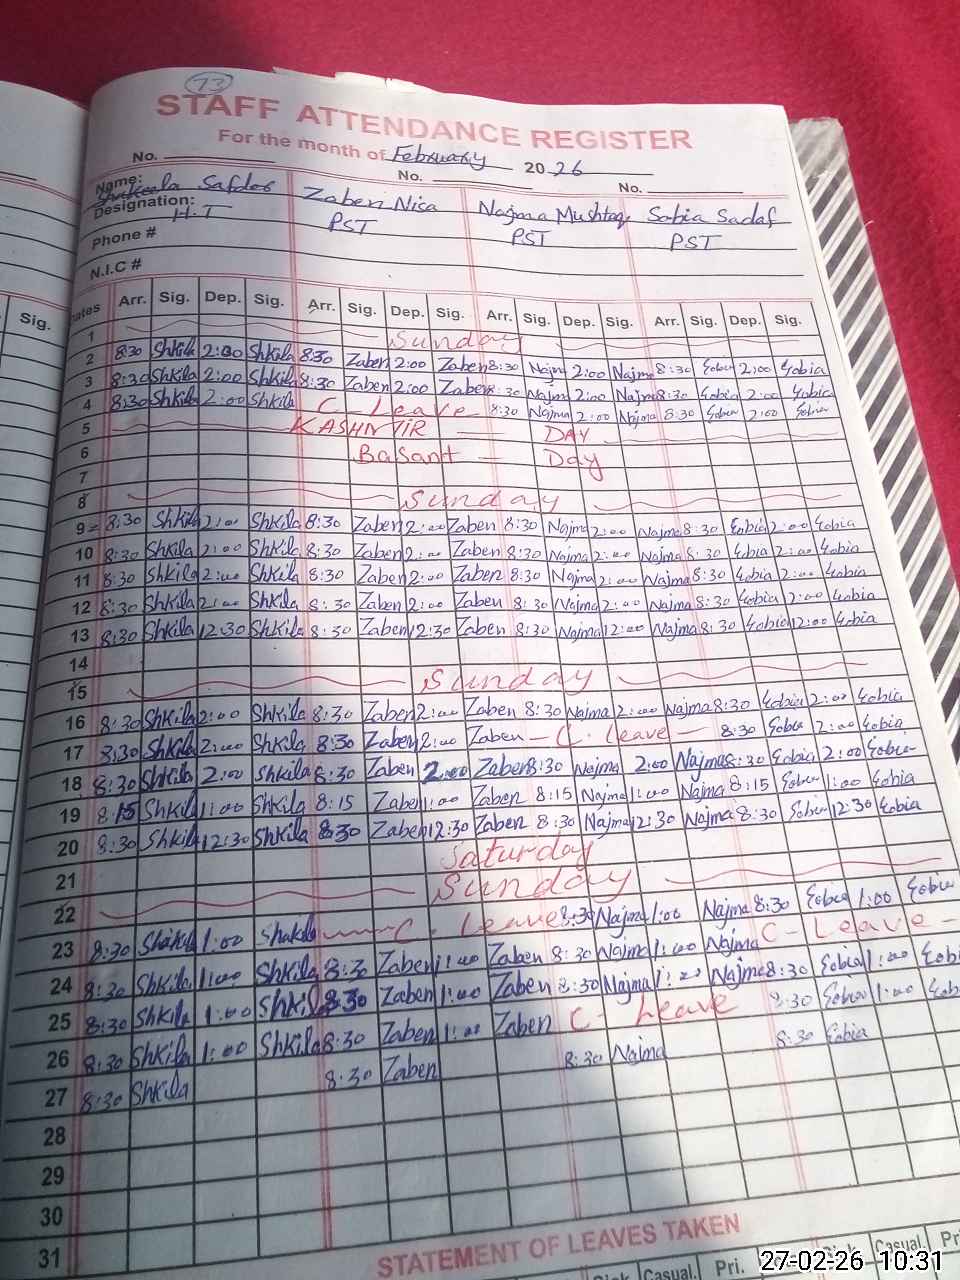 73
STAFF ATTENDANCE REGISTER
For the month of February 2026
No. No. No.
Name: Shakeela Safdar Zaben Nisa Najma Mushtaq Sobia Sadaf
Designation: H.T PST PST PST
Phone #
N.I.C #
Dates Arr. Sig. Dep. Sig. Arr. Sig. Dep. Sig. Arr. Sig. Dep. Sig. Arr. Sig. Dep. Sig.
Sig.
1 Sunday
2 8:30 Shkila 2:00 Shkila 8:30 Zaben 2:00 Zaben 8:30 Najma 2:00 Najma 8:30 Sobia 2:00 Sobia
3 8:30 Shkila 2:00 Shkila 8:30 Zaben 2:00 Zaben 8:30 Najma 2:00 Najma 8:30 Sobia 2:00 Sobia
4 8:30 Shkila 2:00 Shkila C- Leave 8:30 Najma 2:00 Najma 8:30 Sobia 2:00 Sobia
5 KASHMIR DAY
6 Basant - Day
7
8 Sunday
9 8:30 Shkila 2:00 Shkila 8:30 Zaben 2:00 Zaben 8:30 Najma 2:00 Najma 8:30 Sobia 2:00 Sobia
10 8:30 Shkila 2:00 Shkila 8:30 Zaben 2:00 Zaben 8:30 Najma 2:00 Najma 8:30 Sobia 2:00 Sobia
11 8:30 Shkila 2:00 Shkila 8:30 Zaben 2:00 Zaben 8:30 Najma 2:00 Najma 8:30 Sobia 2:00 Sobia
12 8:30 Shkila 2:00 Shkila 8:30 Zaben 2:00 Zaben 8:30 Najma 2:00 Najma 8:30 Sobia 2:00 Sobia
13 8:30 Shkila 12:30 Shkila 8:30 Zaben 12:30 Zaben 8:30 Najma 12:00 Najma 8:30 Sobia 12:00 Sobia
14
15 Sunday
16 8:30 Shkila 2:00 Shkila 8:30 Zaben 2:00 Zaben 8:30 Najma 2:00 Najma 8:30 Sobia 2:00 Sobia
17 8:30 Shkila 2:00 Shkila 8:30 Zaben 2:00 Zaben - C. leave - 8:30 Sobia 2:00 Sobia
18 8:30 Shkila 2:00 Shkila 8:30 Zaben 2:00 Zaben 8:30 Najma 2:00 Najma 8:30 Sobia 2:00 Sobia
19 8:15 Shkila 1:00 Shkila 8:15 Zaben 1:00 Zaben 8:15 Najma 1:00 Najma 8:15 Sobia 1:00 Sobia
20 8:30 Shkila 12:30 Shkila 8:30 Zaben 12:30 Zaben 8:30 Najma 12:30 Najma 8:30 Sobia 12:30 Sobia
21 Saturday
22 Sunday
23 8:30 Shakila 1:00 Shakila C. leave 8:30 Najma 1:00 Najma 8:30 Sobia 1:00 Sobia
24 8:30 Shkila 1:00 Shkila 8:30 Zaben 1:00 Zaben 8:30 Najma 1:00 Najma C- Leave -
25 8:30 Shkila 1:00 Shkila 8:30 Zaben 1:00 Zaben 8:30 Najma 1:00 Najma 8:30 Sobia 1:00 Sobia
26 8:30 Shkila 1:00 Shkila 8:30 Zaben 1:00 Zaben C- Leave 8:30 Sobia 1:00 Sobia
27 8:30 Shkila 8:30 Zaben 8:30 Najma 8:30 Sobia
28
29
30
31
STATEMENT OF LEAVES TAKEN
Sick Casual. Pri. Sick Casual. Pri.
27-02-26 10:31